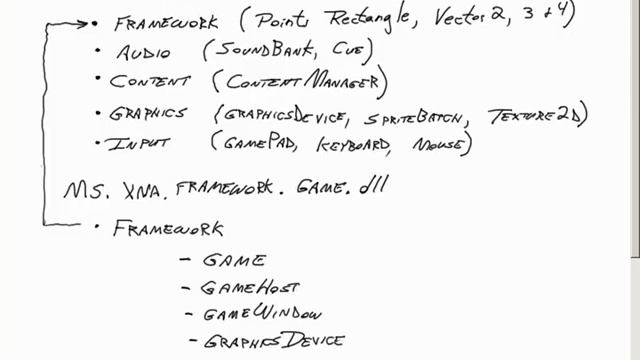 • FRAMEWORK (Points Rectangle, Vector2, 3 + 4)
• AUDIO (SOUNDBANK, CUE)
• CONTENT (CONTENTMANAGER)
• GRAPHICS (GRAPHICSDEVICE, SPRITEBATCH, TEXTURE2D)
• INPUT (GAMEPAD, KEYBOARD, MOUSE)
MS. XNA. FRAMEWORK. GAME. dll
• FRAMEWORK
- GAME
- GAMEHOST
- GAMEWINDOW
- GRAPHICSDEVICE